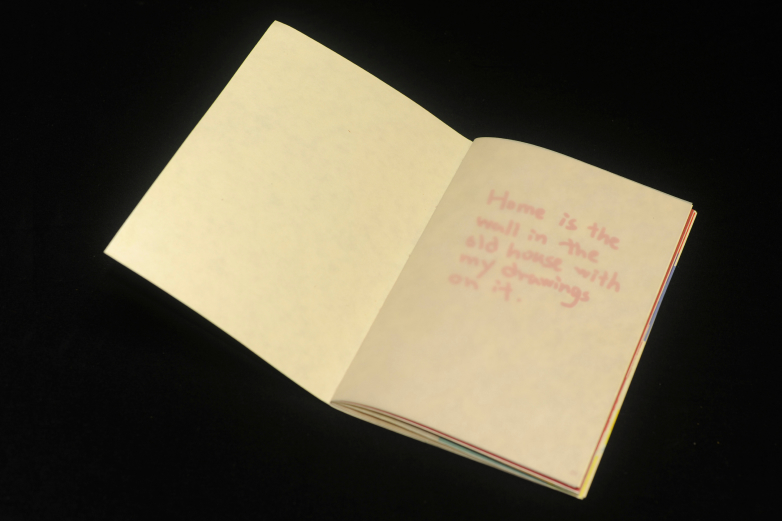 Home is the
wall in the
old house with
my drawings
on it.